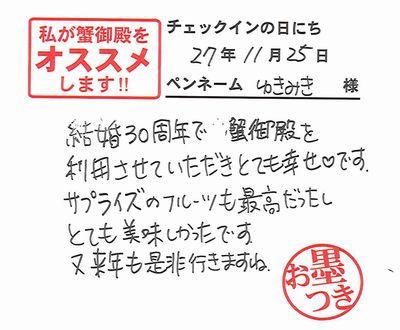 私が蟹御殿を
オススメ
します!!
チェックインの日にち
27年11月25日
ペンネーム ゆきみき 様
結婚30周年で 蟹御殿を
利用させていただきとても幸せ♡です.
サプライズのフルーツも最高だったし
とても美味しかったです
又来年も是非行きますね.
お墨つき